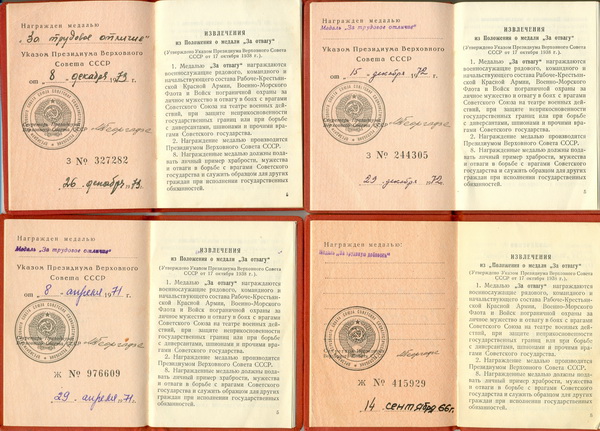 Награжден медалью
„За трудовое отличие"
Указом Президиума Верховного
Совета СССР
от „ 8 „ декабря 1973 г.
З № 327282
26 декабря 73.
ИЗВЛЕЧЕНИЯ
из Положения о медали „За отвагу"
(Утверждено Указом Президиума Верховного Совета
СССР от 17 октября 1938 г.)
1. Медалью „За отвагу" награждаются
военнослужащие рядового, командного и
начальствующего состава Рабоче-Крестьян-
ской Красной Армии, Военно-Морского
Флота и Войск пограничной охраны за
личное мужество и отвагу в боях с врагами
Советского Союза на театре военных дей-
ствий, при защите неприкосновенности
государственных границ или при борьбе
с диверсантами, шпионами и прочими вра-
гами Советского государства.
2. Награждение медалью производится
Президиумом Верховного Совета СССР.
8. Награжденные медалью должны пода-
вать личный пример храбрости, мужества
и отваги в борьбе с врагами Советского
государства и служить образцом для других
граждан при исполнении государственных
обязанностей.
Награжден медалью
Медаль „За трудовое отличие"
Указом Президиума Верховного
Совета СССР
от „ 15 „ декабря 1972 г.
З № 244305
29 декабря 72
ИЗВЛЕЧЕНИЯ
из Положения о медали „За отвагу"
(Утверждено Указом Президиума Верховного Совета
СССР от 17 октября 1938 г.)
1. Медалью „За отвагу" награждаются
военнослужащие рядового, командного и
начальствующего состава Рабоче-Крестьян-
ской Красной Армии, Военно-Морского
Флота и Войск пограничной охраны за
личное мужество и отвагу в боях с врагами
Советского Союза на театре военных дей-
ствий, при защите неприкосновенности
государственных границ или при борьбе
с диверсантами, шпионами и прочими вра-
гами Советского государства.
2. Награждение медалью производится
Президиумом Верховного Совета СССР.
8. Награжденные медалью должны пода-
вать личный пример храбрости, мужества
и отваги в борьбе с врагами Советского
государства и служить образцом для других
граждан при исполнении государственных
обязанностей.
Награжден медалью
Медаль „За трудовое отличие"
Указом Президиума Верховного
Совета СССР
от „ 8 „ апреля 1971 г.
Ж № 976609
29 апреля 71
ИЗВЛЕЧЕНИЯ
из Положения о медали „За отвагу"
(Утверждено Указом Президиума Верховного Совета
СССР от 17 октября 1938 г.)
1. Медалью „За отвагу" награждаются
военнослужащие рядового, командного и
начальствующего состава Рабоче-Крестьян-
ской Красной Армии, Военно-Морского
Флота и Войск пограничной охраны за
личное мужество и отвагу в боях с врагами
Советского Союза на театре военных дей-
ствий, при защите неприкосновенности
государственных границ или при борьбе
с диверсантами, шпионами и прочими вра-
гами Советского государства.
2. Награждение медалью производится
Президиумом Верховного Совета СССР.
8. Награжденные медалью должны пода-
вать личный пример храбрости, мужества
и отваги в борьбе с врагами Советского
государства и служить образцом для других
граждан при исполнении государственных
обязанностей.
Награжден медалью:
Медаль „За трудовую доблесть"
Ж № 415929
14 сентября 66г.
ИЗВЛЕЧЕНИЯ
из Положения о медали „За отвагу"
(Утверждено Указом Президиума Верховного Совета
СССР от 17 октября 1938 г.)
1. Медалью „За отвагу" награждаются
военнослужащие рядового, командного и
начальствующего состава Рабоче-Крестьян-
ской Красной Армии, Военно-Морского
Флота и Войск пограничной охраны за
личное мужество и отвагу в боях с врагами
Советского Союза на театре военных дей-
ствий, при защите неприкосновенности
государственных границ или при борьбе
с диверсантами, шпионами и прочими вра-
гами Советского государства.
2. Награждение медалью производится
Президиумом Верховного Совета СССР.
8. Награжденные медалью должны пода-
вать личный пример храбрости, мужества
и отваги в борьбе с врагами Советского
государства и служить образцом для других
граждан при исполнении государственных
обязанностей.